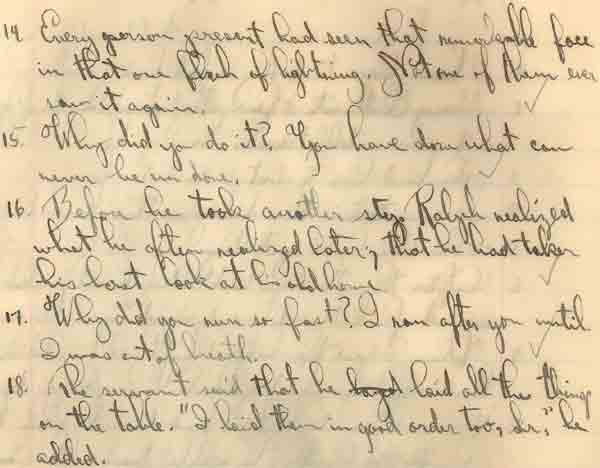 14. Every person present had seen that remarkable face
in that one flash of lightning. Not one of them ever
saw it again.
15. Why did you do it? You have done what can
never be un done.
16. Before he took another step Ralph realized
what he often realized later, that he had taken
his last look at his old home
17. Why did you run so fast? I ran after you until
I was out of breath.
18. The servant said that he laid all the things
on the table. "I laid them in good order too, sir," he
added.